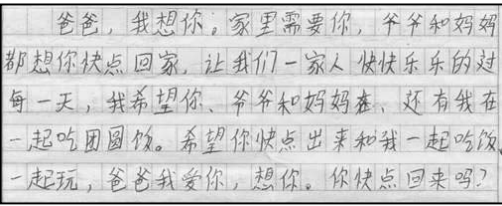 爸爸，我想你。家里需要你，爷爷和妈妈
都想你快点回家，让我们一家人快快乐乐的过
每一天，我希望你、爷爷和妈妈在、还有我在
一起吃团圆饭。希望你快点出来和我一起吃饭、
一起玩，爸爸我爱你，想你。你快点回来吗？